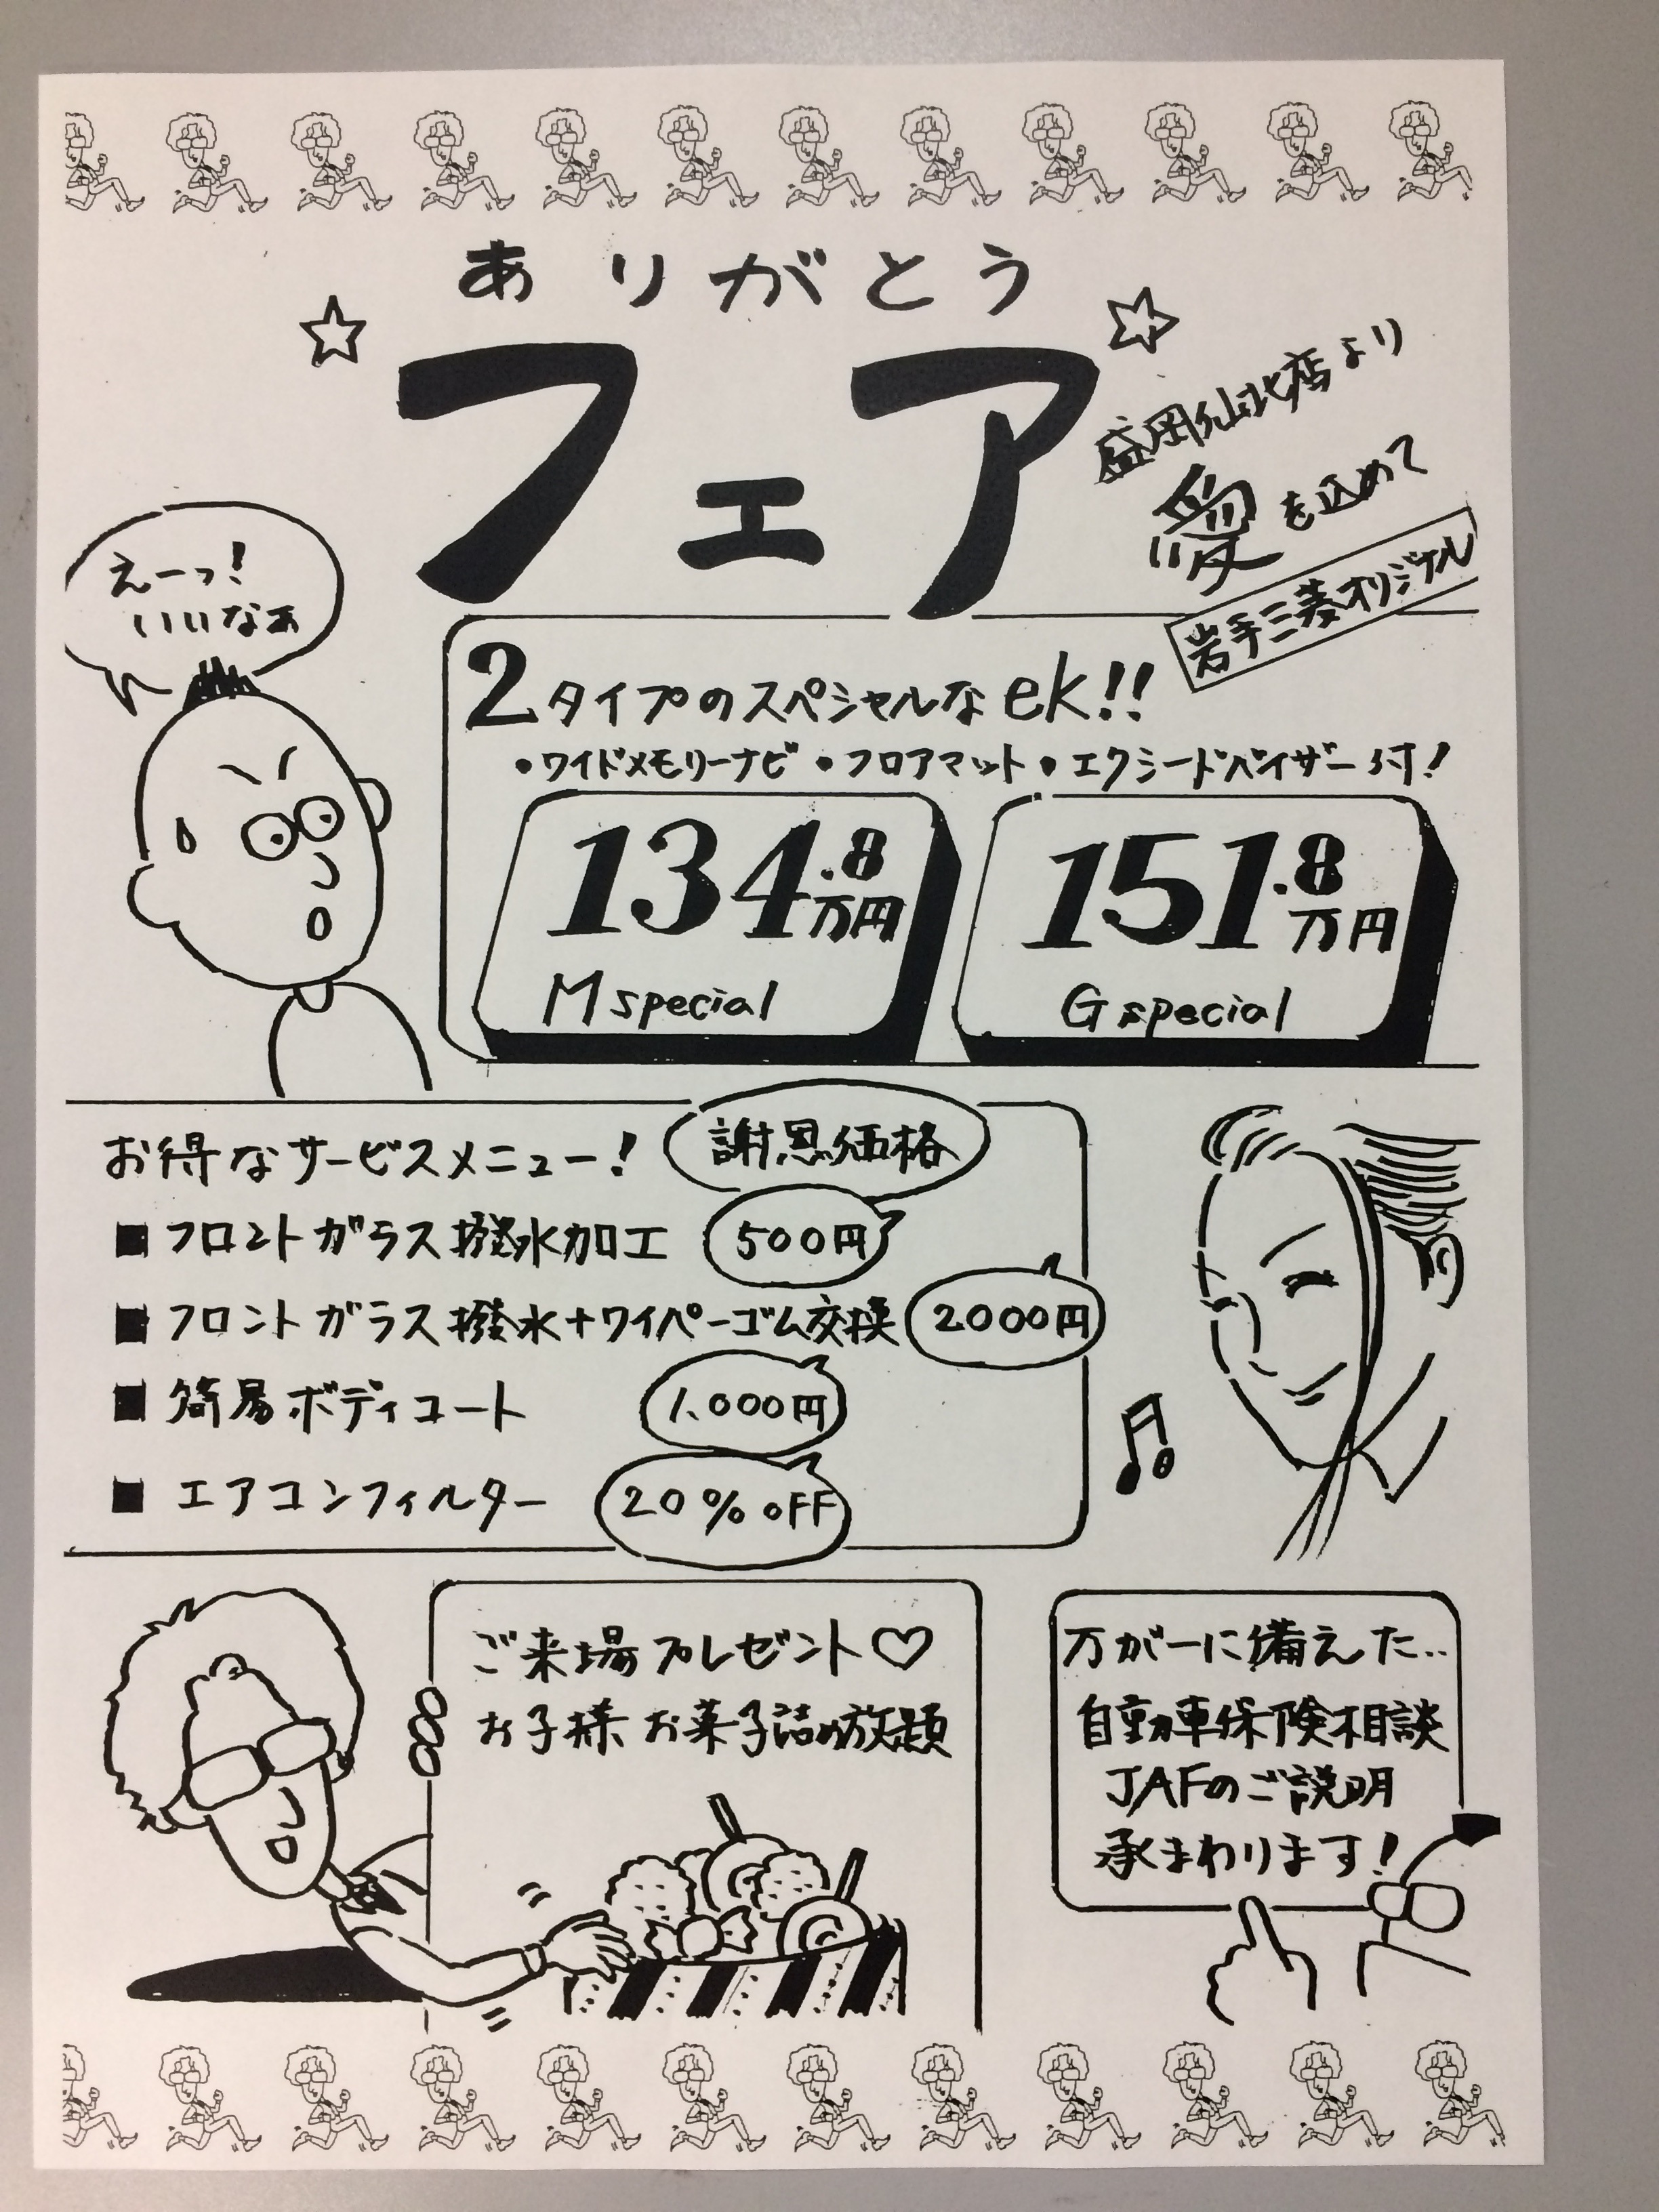 ありがとう
フェア
盛岡仙北店より
愛を込めて
えーっ!
いいなぁ
岩手三菱オリジナル
2タイプのスペシャルなek!!
・ワイドメモリーナビ・フロアマット・エクシードバイザー付!
134.8万円
M special
151.8万円
G special
お得なサービスメニュー! 謝恩価格
■フロントガラス撥水加工 500円
■フロントガラス撥水+ワイパーゴム交換 2000円
■簡易ボディコート 1,000円
■エアコンフィルター 20%OFF
ご来場プレゼント♡
お子様お菓子詰め放題
万が一に備えた..
自動車保険相談
JAFのご説明
承まわります!